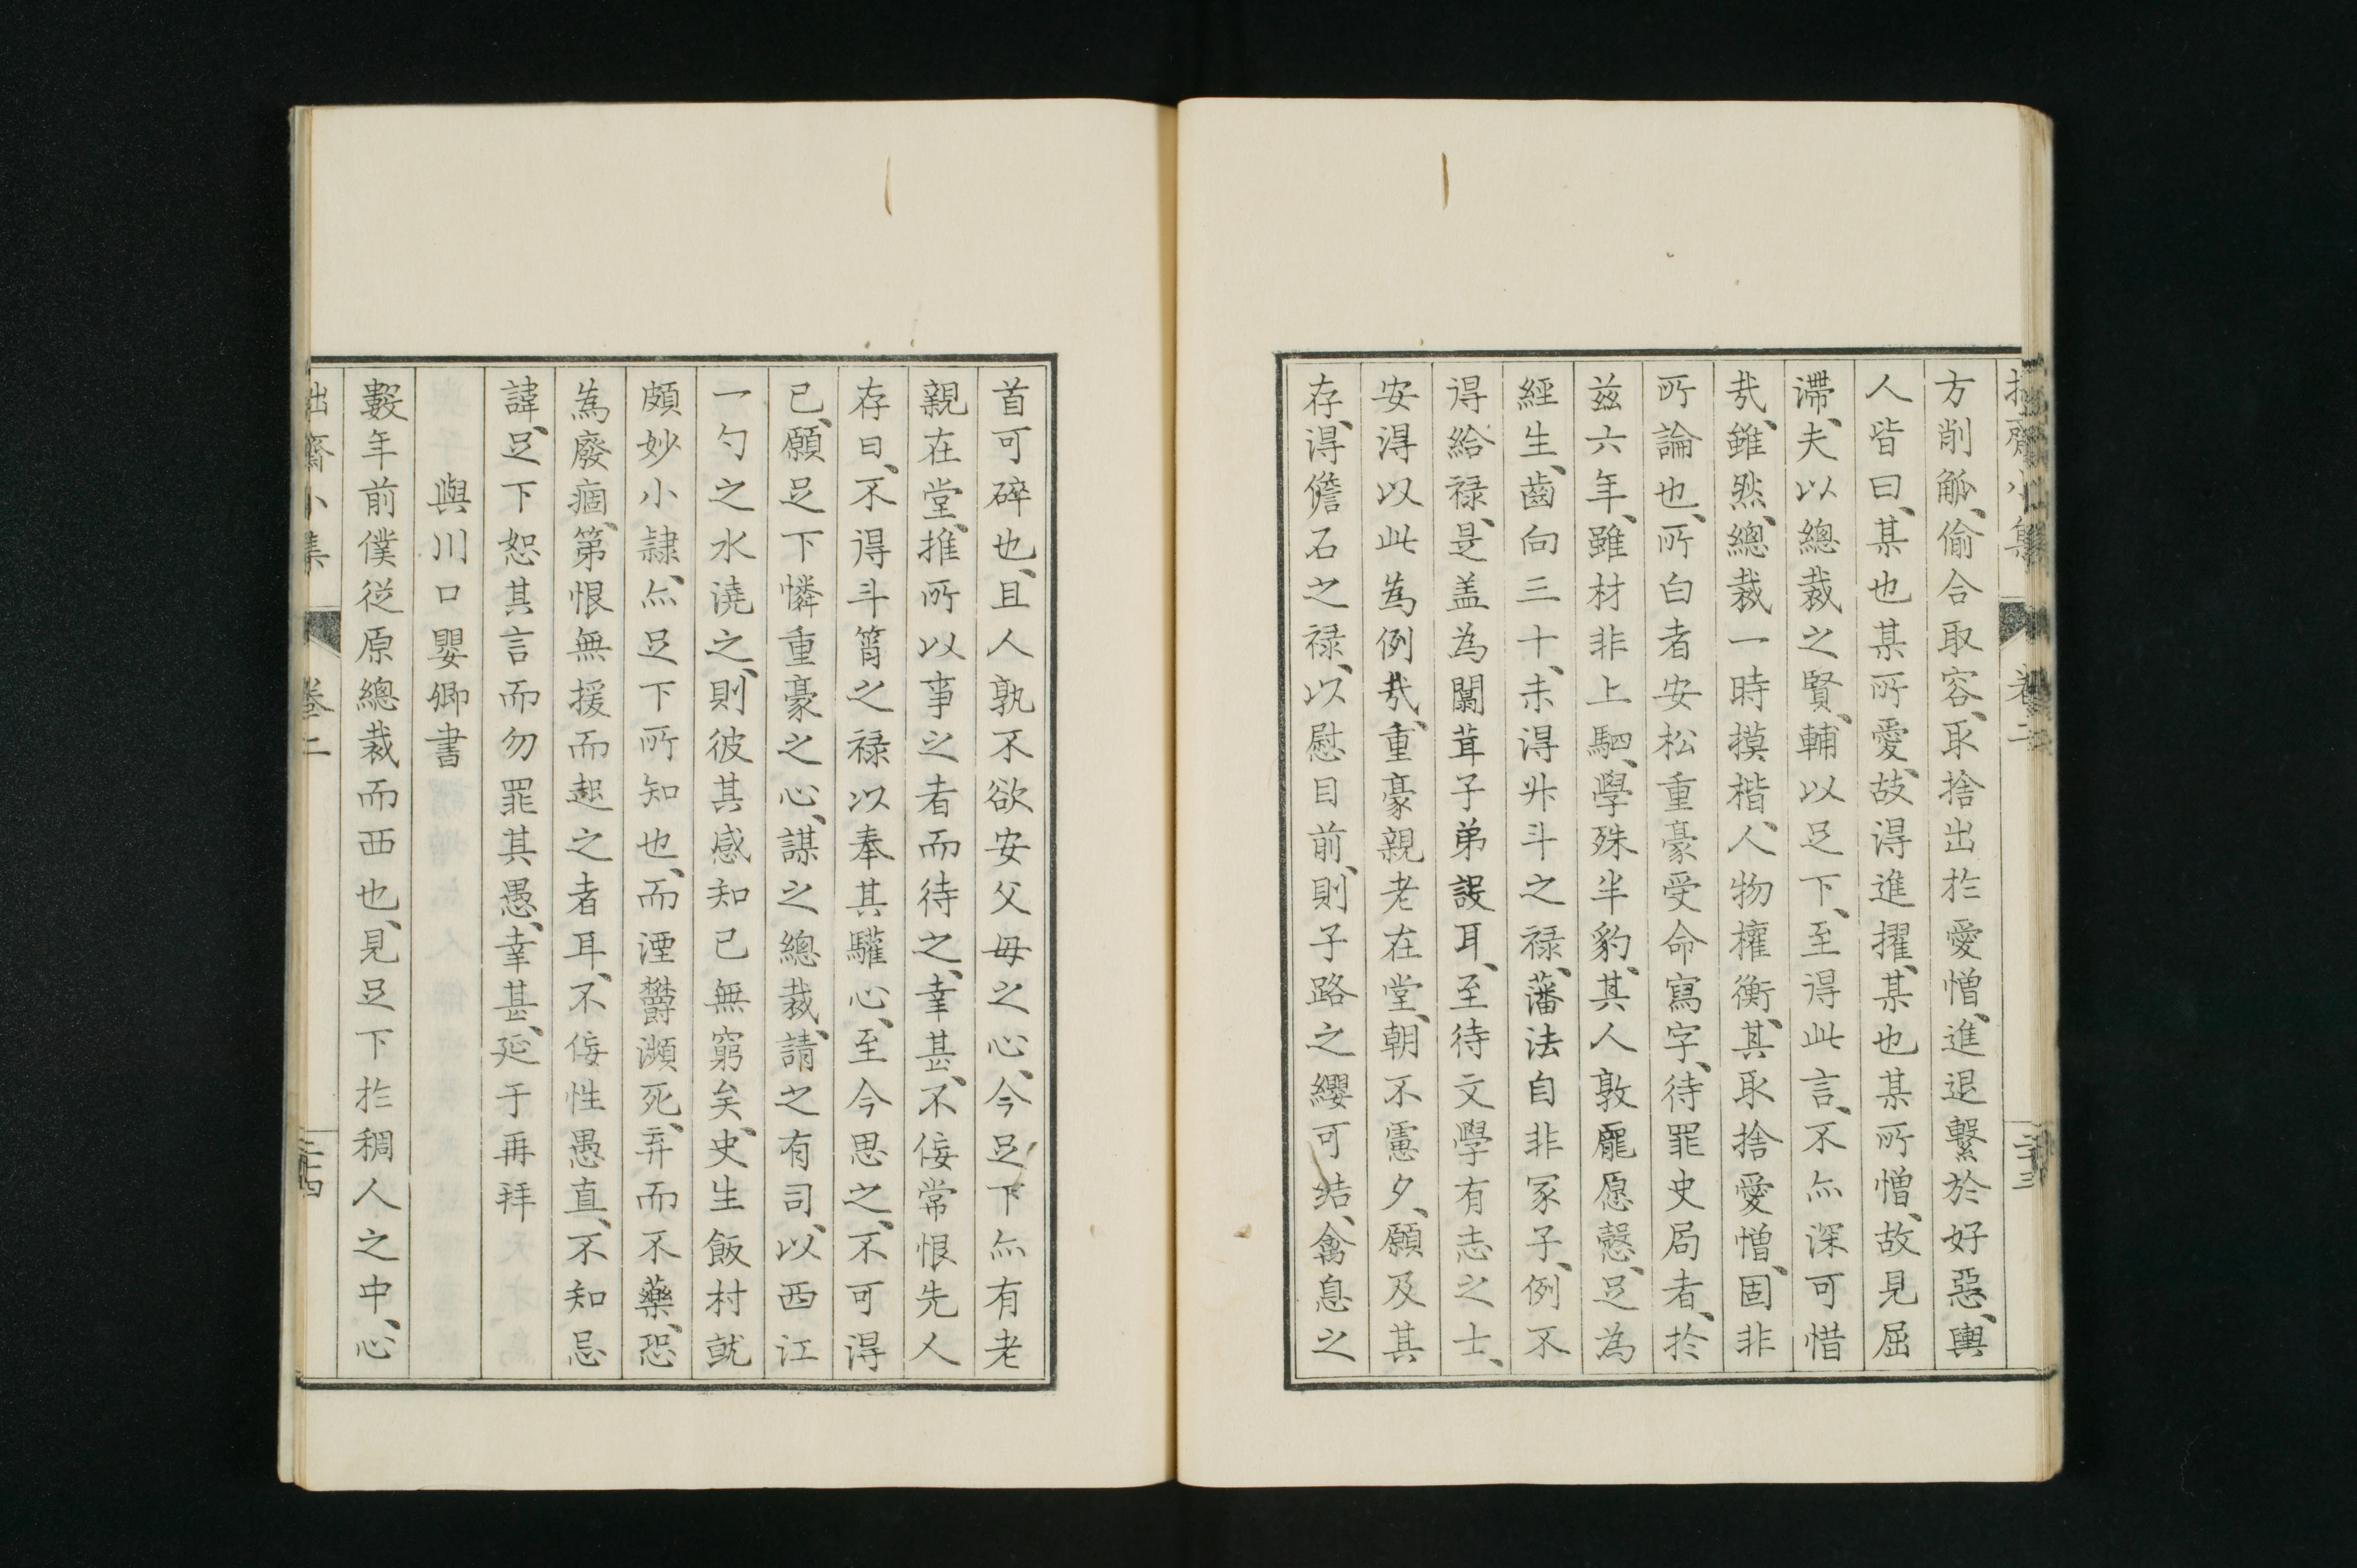 拙齋小集 卷二 二十三
方削觚、偷合取容、取捨出於愛憎、進退繫於好惡、輿
人皆曰、某也某所愛、故得進擢、某也某所憎、故見屈
滯、夫以總裁之賢、輔以足下、至得此言、不亦深可惜
哉、雖然、總裁一時摸楷、人物權衡、其取捨愛憎、固非
所論也、所白者安松重豪受命寫字、待罪史局者、於
茲六年、雖材非上駟、學殊半豹、其人敦龐愿慤、足為
經生、齒向三十、未得升斗之祿、藩法自非冢子、例不
得給祿、是盖為闒茸子弟設耳、至待文學有志之士、
安得以此為例哉、重豪親老在堂、朝不慮夕、願及其
存、得儋石之祿、以慰目前、則子路之纓可結、禽息之
首可碎也、且人孰不欲安父母之心、今足下亦有老
親在堂、推所以事之者而待之、幸甚、不佞常恨先人
存日、不得斗筲之祿以奉其驩心、至今思之、不可得
已、願足下憐重豪之心、謀之總裁、請之有司、以西江
一勺之水澆之、則彼其感知己無窮矣、史生飯村就
頗妙小隷、亦足下所知也、而湮鬱瀕死、弃而不藥、恐
為廢痼、第恨無援而起之者耳、不佞性愚直、不知忌
諱、足下恕其言而勿罪其愚、幸甚、延于再拜
與川口嬰卿書
數年前僕從原總裁而西也、見足下於稠人之中、心
拙齋小集 卷二 二十四